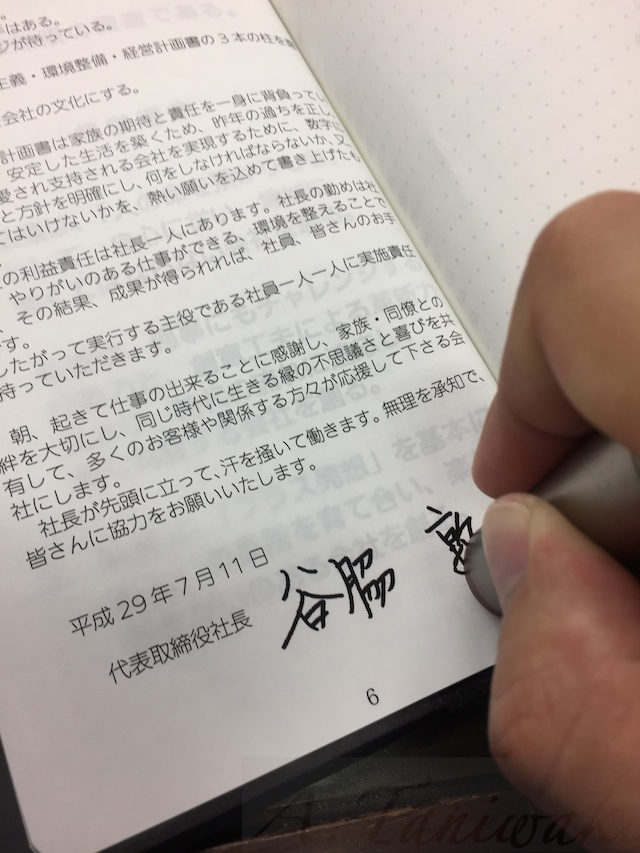 はある。
ジが待っている。
主義・環境整備・経営計画書の3本の柱を
会社の文化にする。
計画書は家族の期待と責任を一身に背負ってい
安定した生活を築くため、昨年の過ちを正し、
愛され支持される会社を実現するために、数字に
と方針を明確にし、何をしなければならないか、又
てはいけないかを、熱い願いを込めて書き上げたも
の利益責任は社長一人にあります。社長の勤めは社
やりがいのある仕事ができる、環境を整えることで
、その結果、成果が得られれば、社員、皆さんのお手
す。
したがって実行する主役である社員一人一人に実施責任
持っていただきます。
朝、起きて仕事の出来ることに感謝し、家族・同僚との
絆を大切にし、同じ時代に生きる縁の不思議さと喜びを共
有して、多くのお客様や関係する方々が応援して下さる会
社にします。
社長が先頭に立って、汗を掻いて働きます。無理を承知で、
皆さんに協力をお願いいたします。
平成29年7月11日
代表取締役社長 谷脇
6
Taniwaki